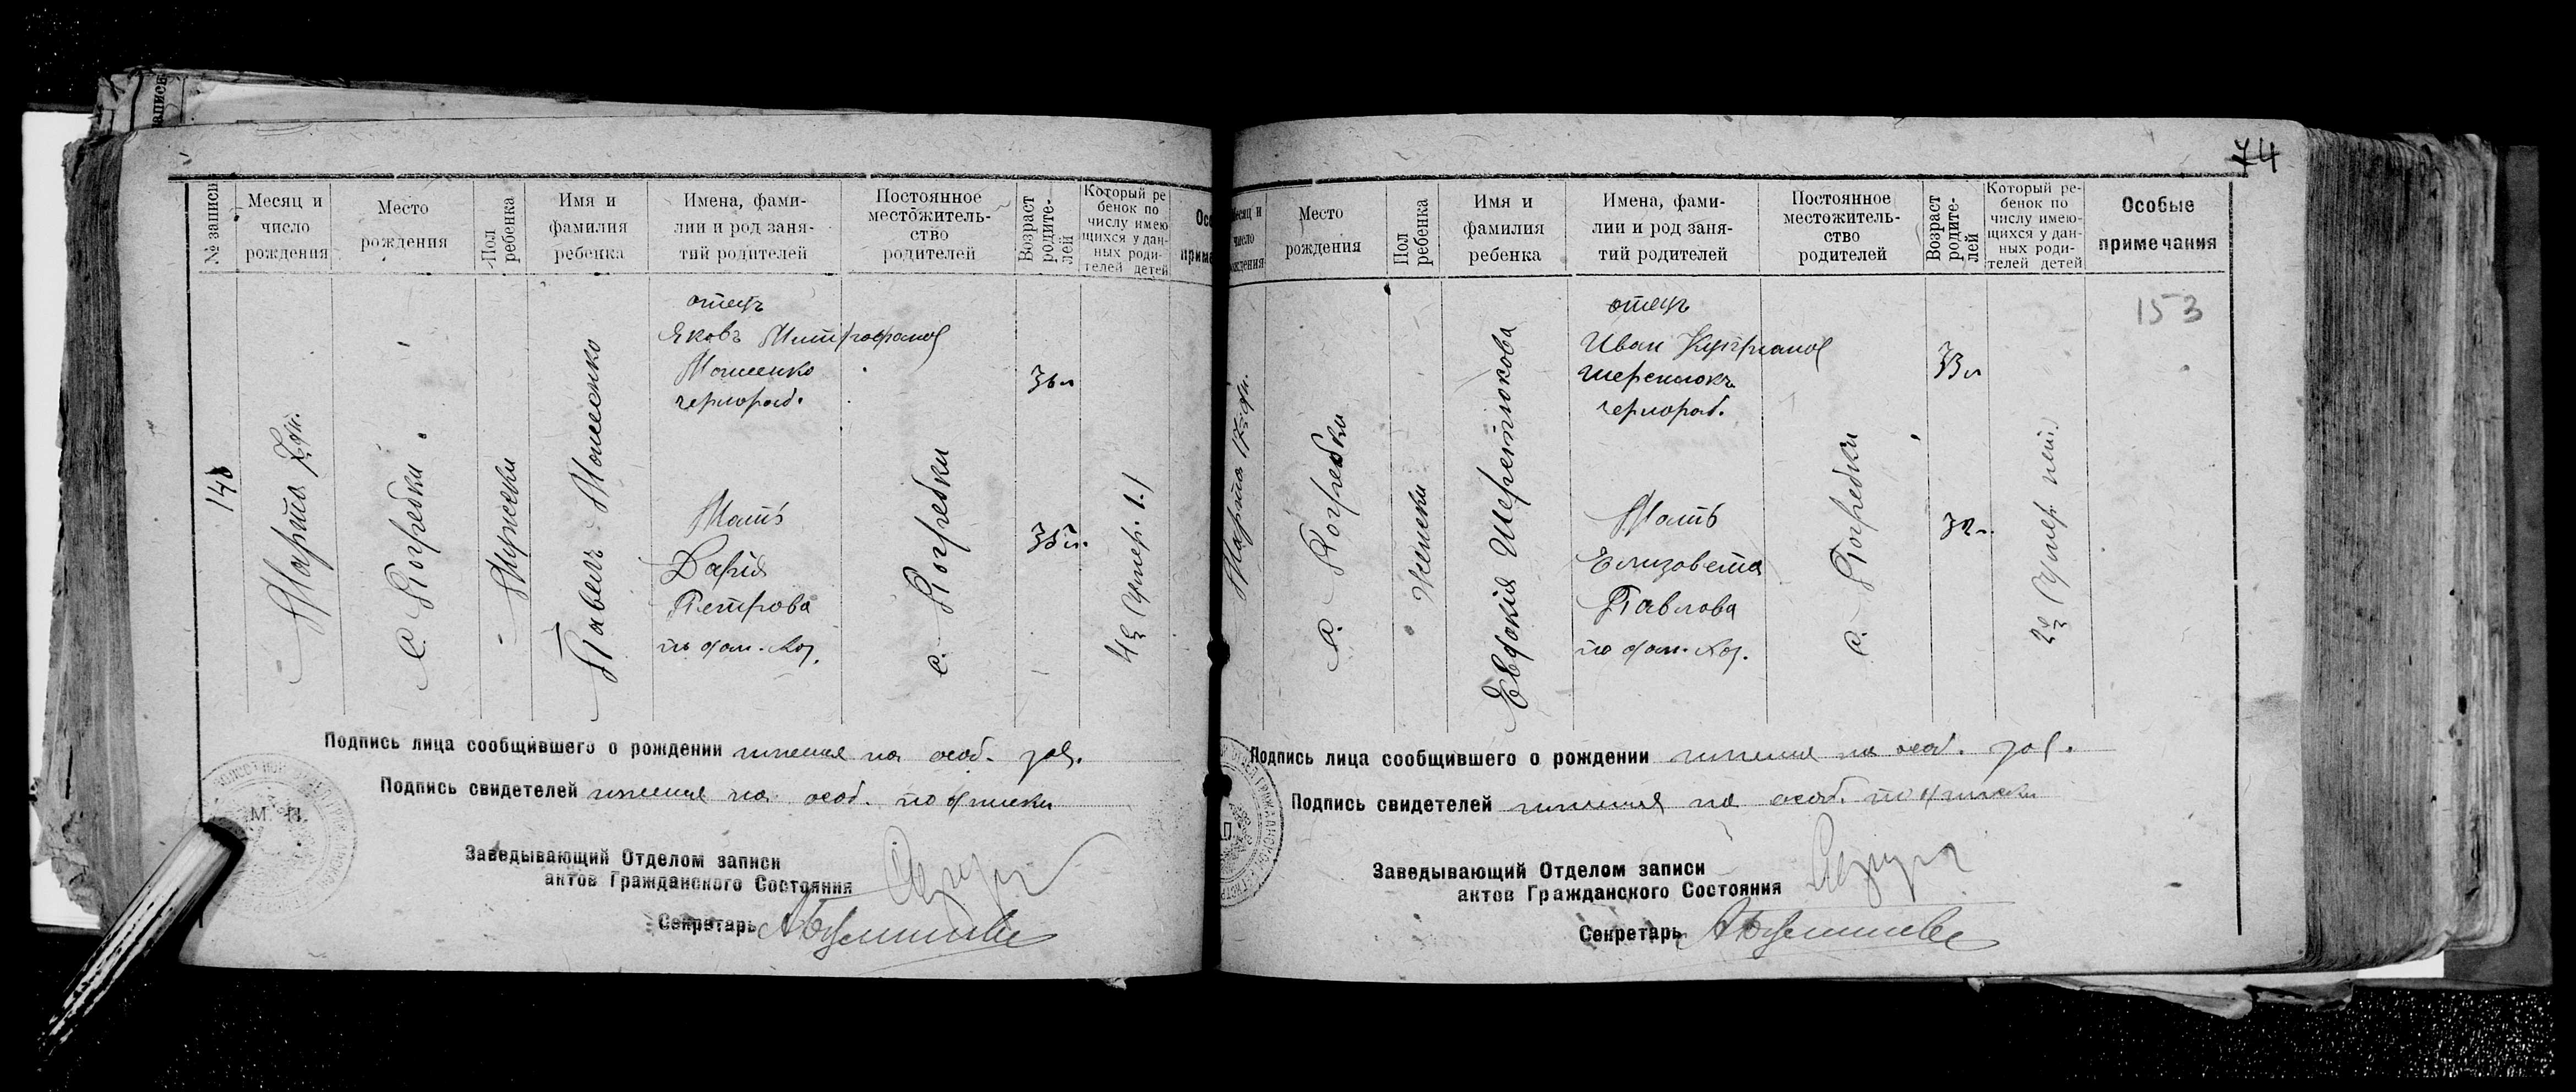 запись
№ записи
Месяц и
число
рождения
Место
рождения
Пол
ребенка
Имя и
фамилия
ребенка
Имена, фами-
лии и род заня-
тий родителей
Постоянное
местожитель-
ство
родителей
Возраст
родите-
лей
Который ре
бенок по
числу имею
щихся у дан-
ных роди-
телей детей
Осо
приме
Марта
с. Погребки
Мужески
Павелъ Мошенко
отецъ
Яковъ Митрофанов
Мошенко
чернораб.
Мать
Дария
Петрова
по дом. хоз.
с. Погребки
36 л
35 л.
4й (умер. 1.)
Подпись лица сообщившего о рождении имения на особ. зая.
Подпись свидетелей имения на особ. подписки
М. П.
Заведывающий Отделом записи
актов Гражданского Состояния
Секретарь
74
Месяц и
число
рождения
Место
рождения
Пол
ребенка
Имя и
фамилия
ребенка
Имена, фами-
лии и род заня-
тий родителей
Постоянное
местожитель-
ство
родителей
Возраст
родите-
лей
Который ре-
бенок по
числу имею-
щихся у дан-
ных роди-
телей детей
Особые
примечания
153
Марта 17 дн.
с. Погребки
Женски
Евдокия Шеретюкова
отецъ
Иван Куприанов
чернораб.
Мать
Елизовета
Павлова
по дом. хоз.
с. Погребки
33 л
32 л.
Подпись лица сообщившего о рождении имения на особ. зая.
Подпись свидетелей имения на особ. подписки
Заведывающий Отделом записи
актов Гражданского Состояния
Секретарь